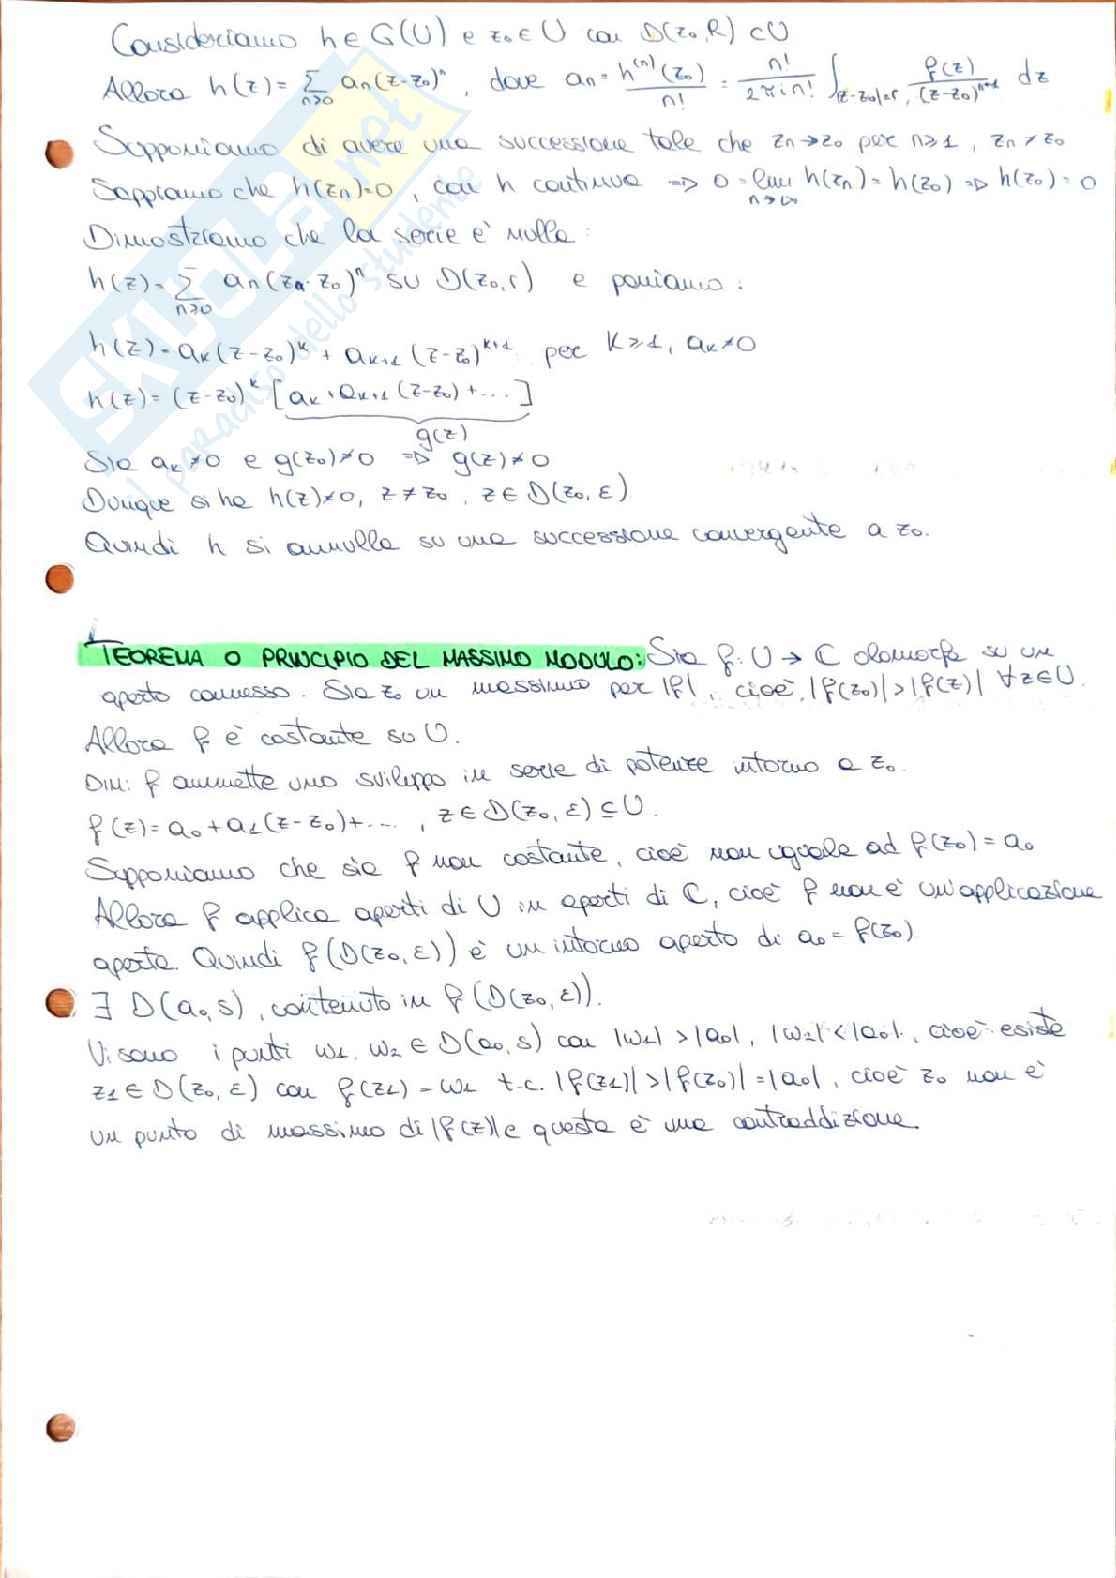 Consideriamo h ∈ G(U) e z₀ ∈ U con D(z₀, R) ⊂ U
Allora h(z) = Σ_{n≥0} aₙ(z-z₀)ⁿ, dove aₙ = h⁽ⁿ⁾(z₀)/n! = n!/(2πi n!) ∫_{|z-z₀|=r} f(z)/(z-z₀)ⁿ⁺¹ dz
Supponiamo di avere una successione tale che zₙ → z₀ per n ≥ 1, zₙ ≠ z₀
Sappiamo che h(zₙ) = 0, con h continua ⇒ 0 = lim_{n→∞} h(zₙ) = h(z₀) ⇒ h(z₀) = 0
Dimostriamo che la serie è nulla:
h(z) = Σ_{n≥0} aₙ(zₙ-z₀)ⁿ su D(z₀, r) e poniamo:
h(z) = aₖ(z-z₀)ᵏ + aₖ₊₁(z-z₀)ᵏ⁺¹ per K ≥ 1, aₖ ≠ 0
h(z) = (z-z₀)ᵏ [aₖ + aₖ₊₁(z-z₀) + ...]
g(z)
Sia aₖ ≠ 0 e g(z₀) ≠ 0 ⇒ g(z) ≠ 0
Dunque si ha h(z) ≠ 0, z ≠ z₀, z ∈ D(z₀, ε)
Quindi h si annulla su una successione convergente a z₀.
TEOREMA O PRINCIPIO DEL MASSIMO MODULO: Sia f: U → C olomorfa su un
aperto connesso. Sia z₀ un massimo per |f|, cioè, |f(z₀)| > |f(z)| ∀z ∈ U.
Allora f è costante su U.
DIM: f ammette uno sviluppo in serie di potenze intorno a z₀.
f(z) = a₀ + a₁(z-z₀) + ...., z ∈ D(z₀, ε) ⊆ U.
Supponiamo che sia f non costante, cioè non uguale ad f(z₀) = a₀
Allora f applica aperti di U in aperti di C, cioè f non è un'applicazione
aperta. Quindi f(D(z₀, ε)) è un intorno aperto di a₀ = f(z₀)
∃ D(a₀, s), contenuto in f(D(z₀, ε)).
Vi sono i punti w₁, w₂ ∈ D(a₀, s) con |w₁| > |a₀|, |w₂| < |a₀|, cioè esiste
z₁ ∈ D(z₀, ε) con f(z₁) = w₁ t.c. |f(z₁)| > |f(z₀)| = |a₀|, cioè z₀ non è
un punto di massimo di |f(z)| e questa è una contraddizione.
SKUOLA.net
il paradiso dello studente